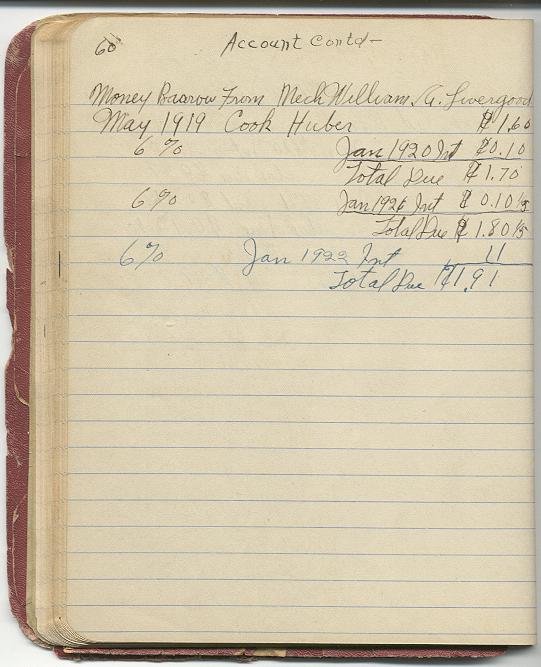 60 Account Contd-
Money Baarow From Mech William. G. Livergood
May 1919 Cook Huber $1.60
6% Jan 1920 Int $0.10
Total Due $1.70
6% Jan 1921 Int $0.10 1/5
Total Due $1.80 1/5
6% Jan 1922 Int 11
Total Due $1.91